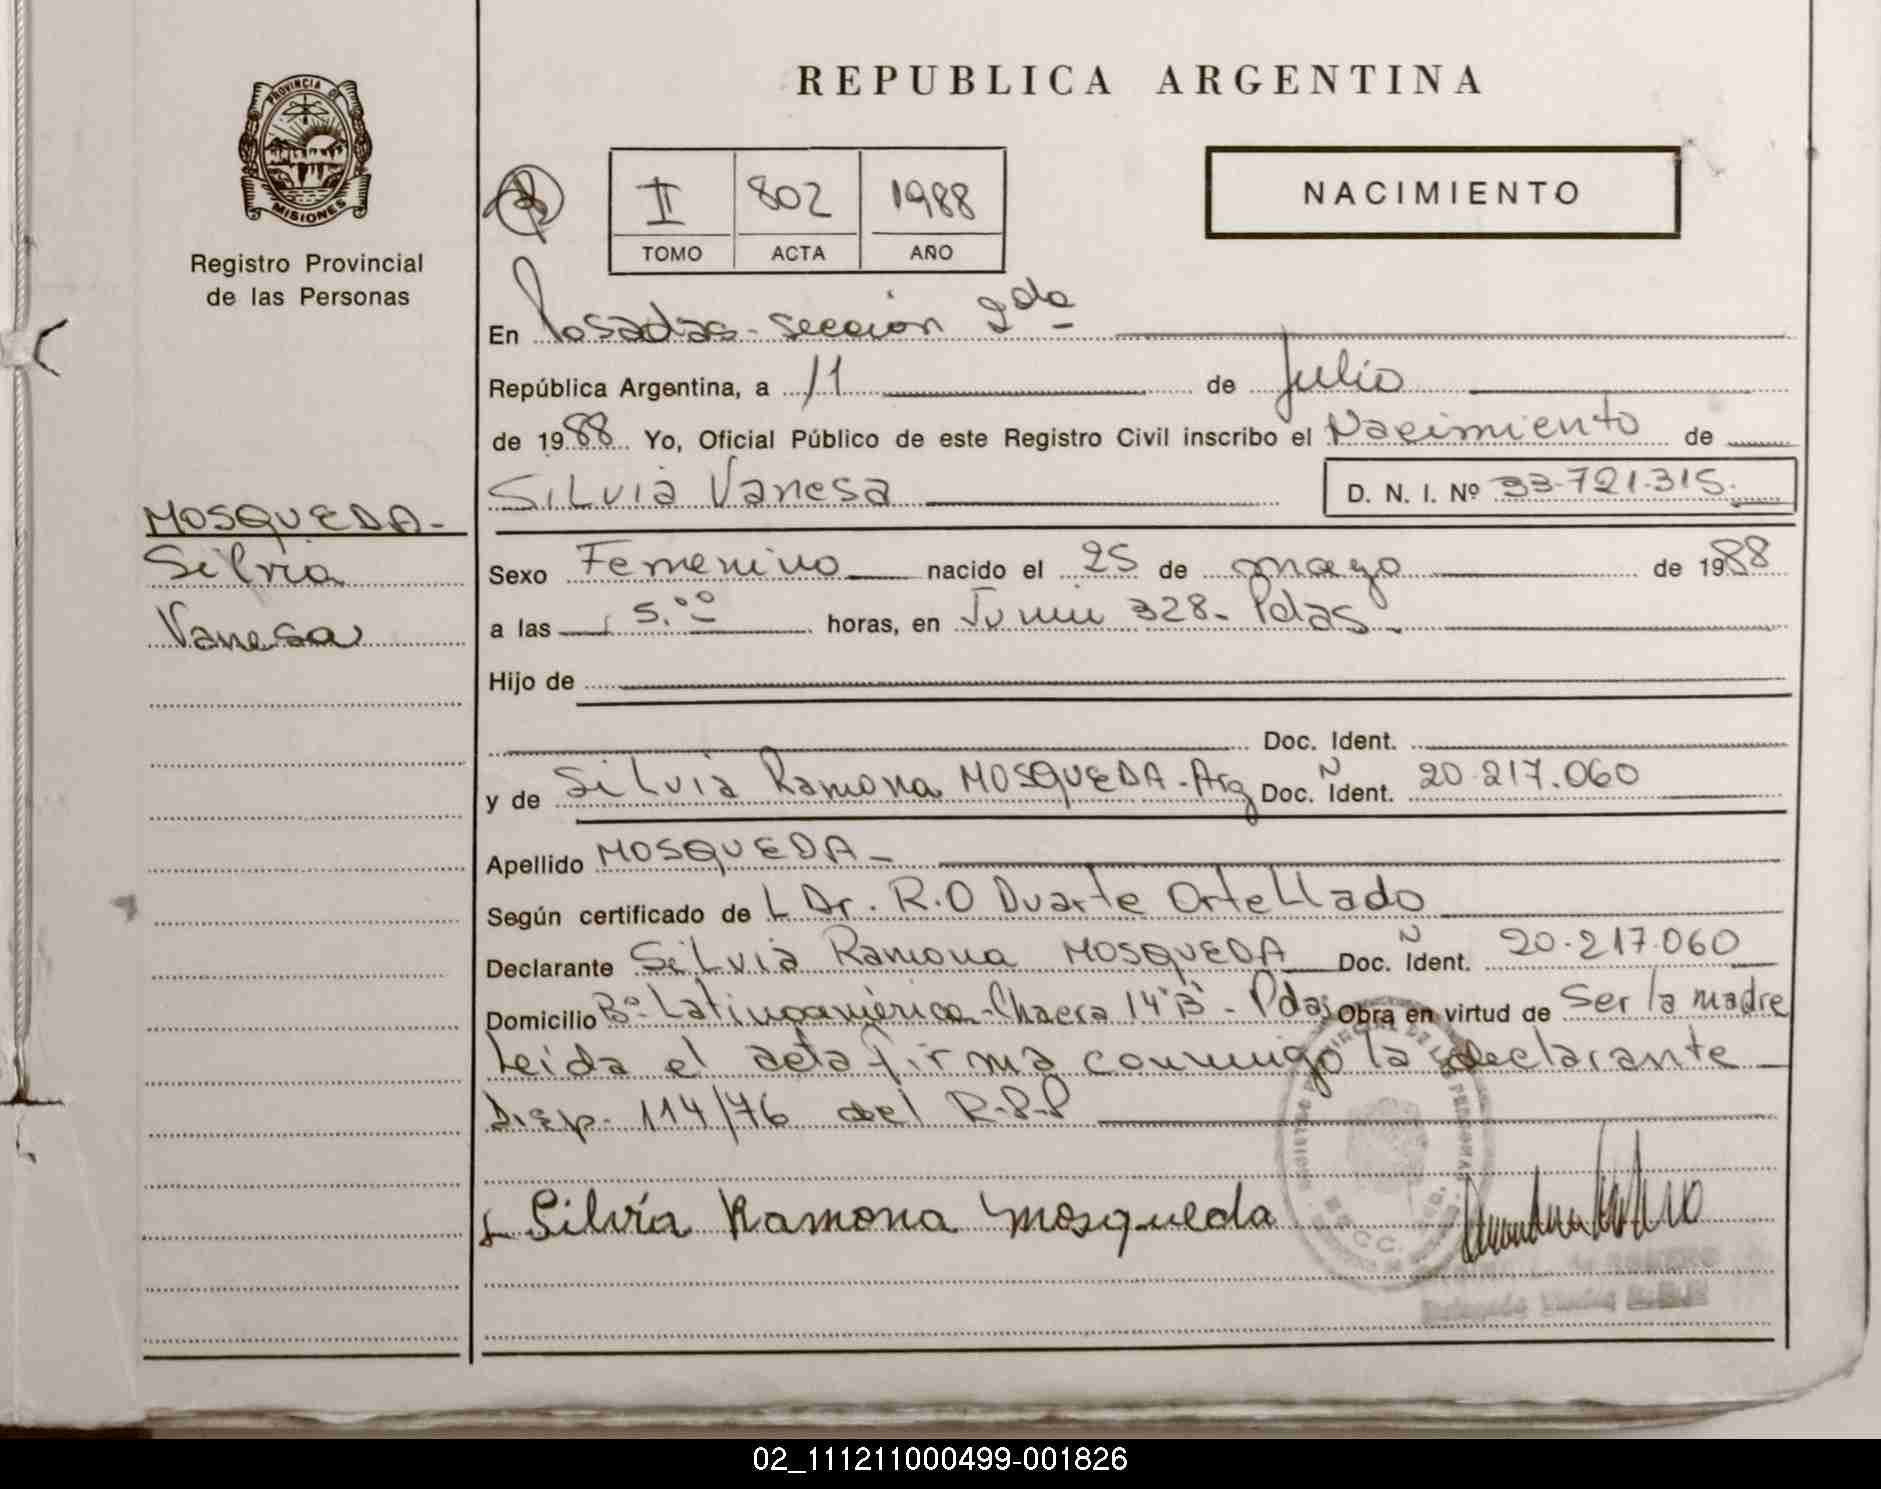 PROVINCIA D
MISIONES
Registro Provincial
de las Personas
MOSQUEDA-
Silvia
Vanesa
REPUBLICA ARGENTINA
II 802 1988
TOMO ACTA AÑO
NACIMIENTO
En Posadas-sección 2da
República Argentina, a 11 de Julio
de 1988 Yo, Oficial Público de este Registro Civil inscribo el Nacimiento de
Silvia Vanesa D. N. I. Nº 33.721.315.
Sexo Femenino nacido el 25 de mayo de 1988
a las 5.00 horas, en Junin 328- Pdas.
Hijo de
Doc. Ident.
y de Silvia Ramona MOSQUEDA-Arg Doc. Ñ Ident. 20.217.060
Apellido MOSQUEDA-
Según certificado de L Dr. R.O Duarte OrteLLado
Declarante Silvia Ramona MOSQUEDA Doc. Ñ Ident. 20.217.060
Domicilio Bº Latinoamérica-Chacra 14"B"- Pdas Obra en virtud de Ser la madre
Leida el acta firma conmigo la declarante
Disp. 114/76 del R.P.P
Silvia Ramona Mosqueda
02_111211000499-001826